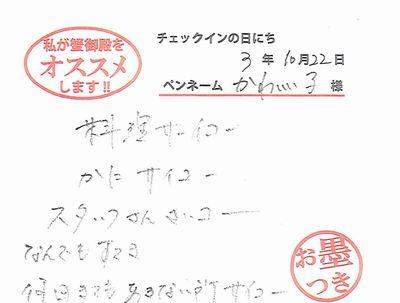 私が蟹御殿を
オススメ
します!!
チェックインの日にち
3年10月22日
ペンネーム かわいい子 様
料理サイコー
かにサイコー
スタッフさんさいコー
なんでもすてき
何日までもあきない所サイコー
お墨
つき